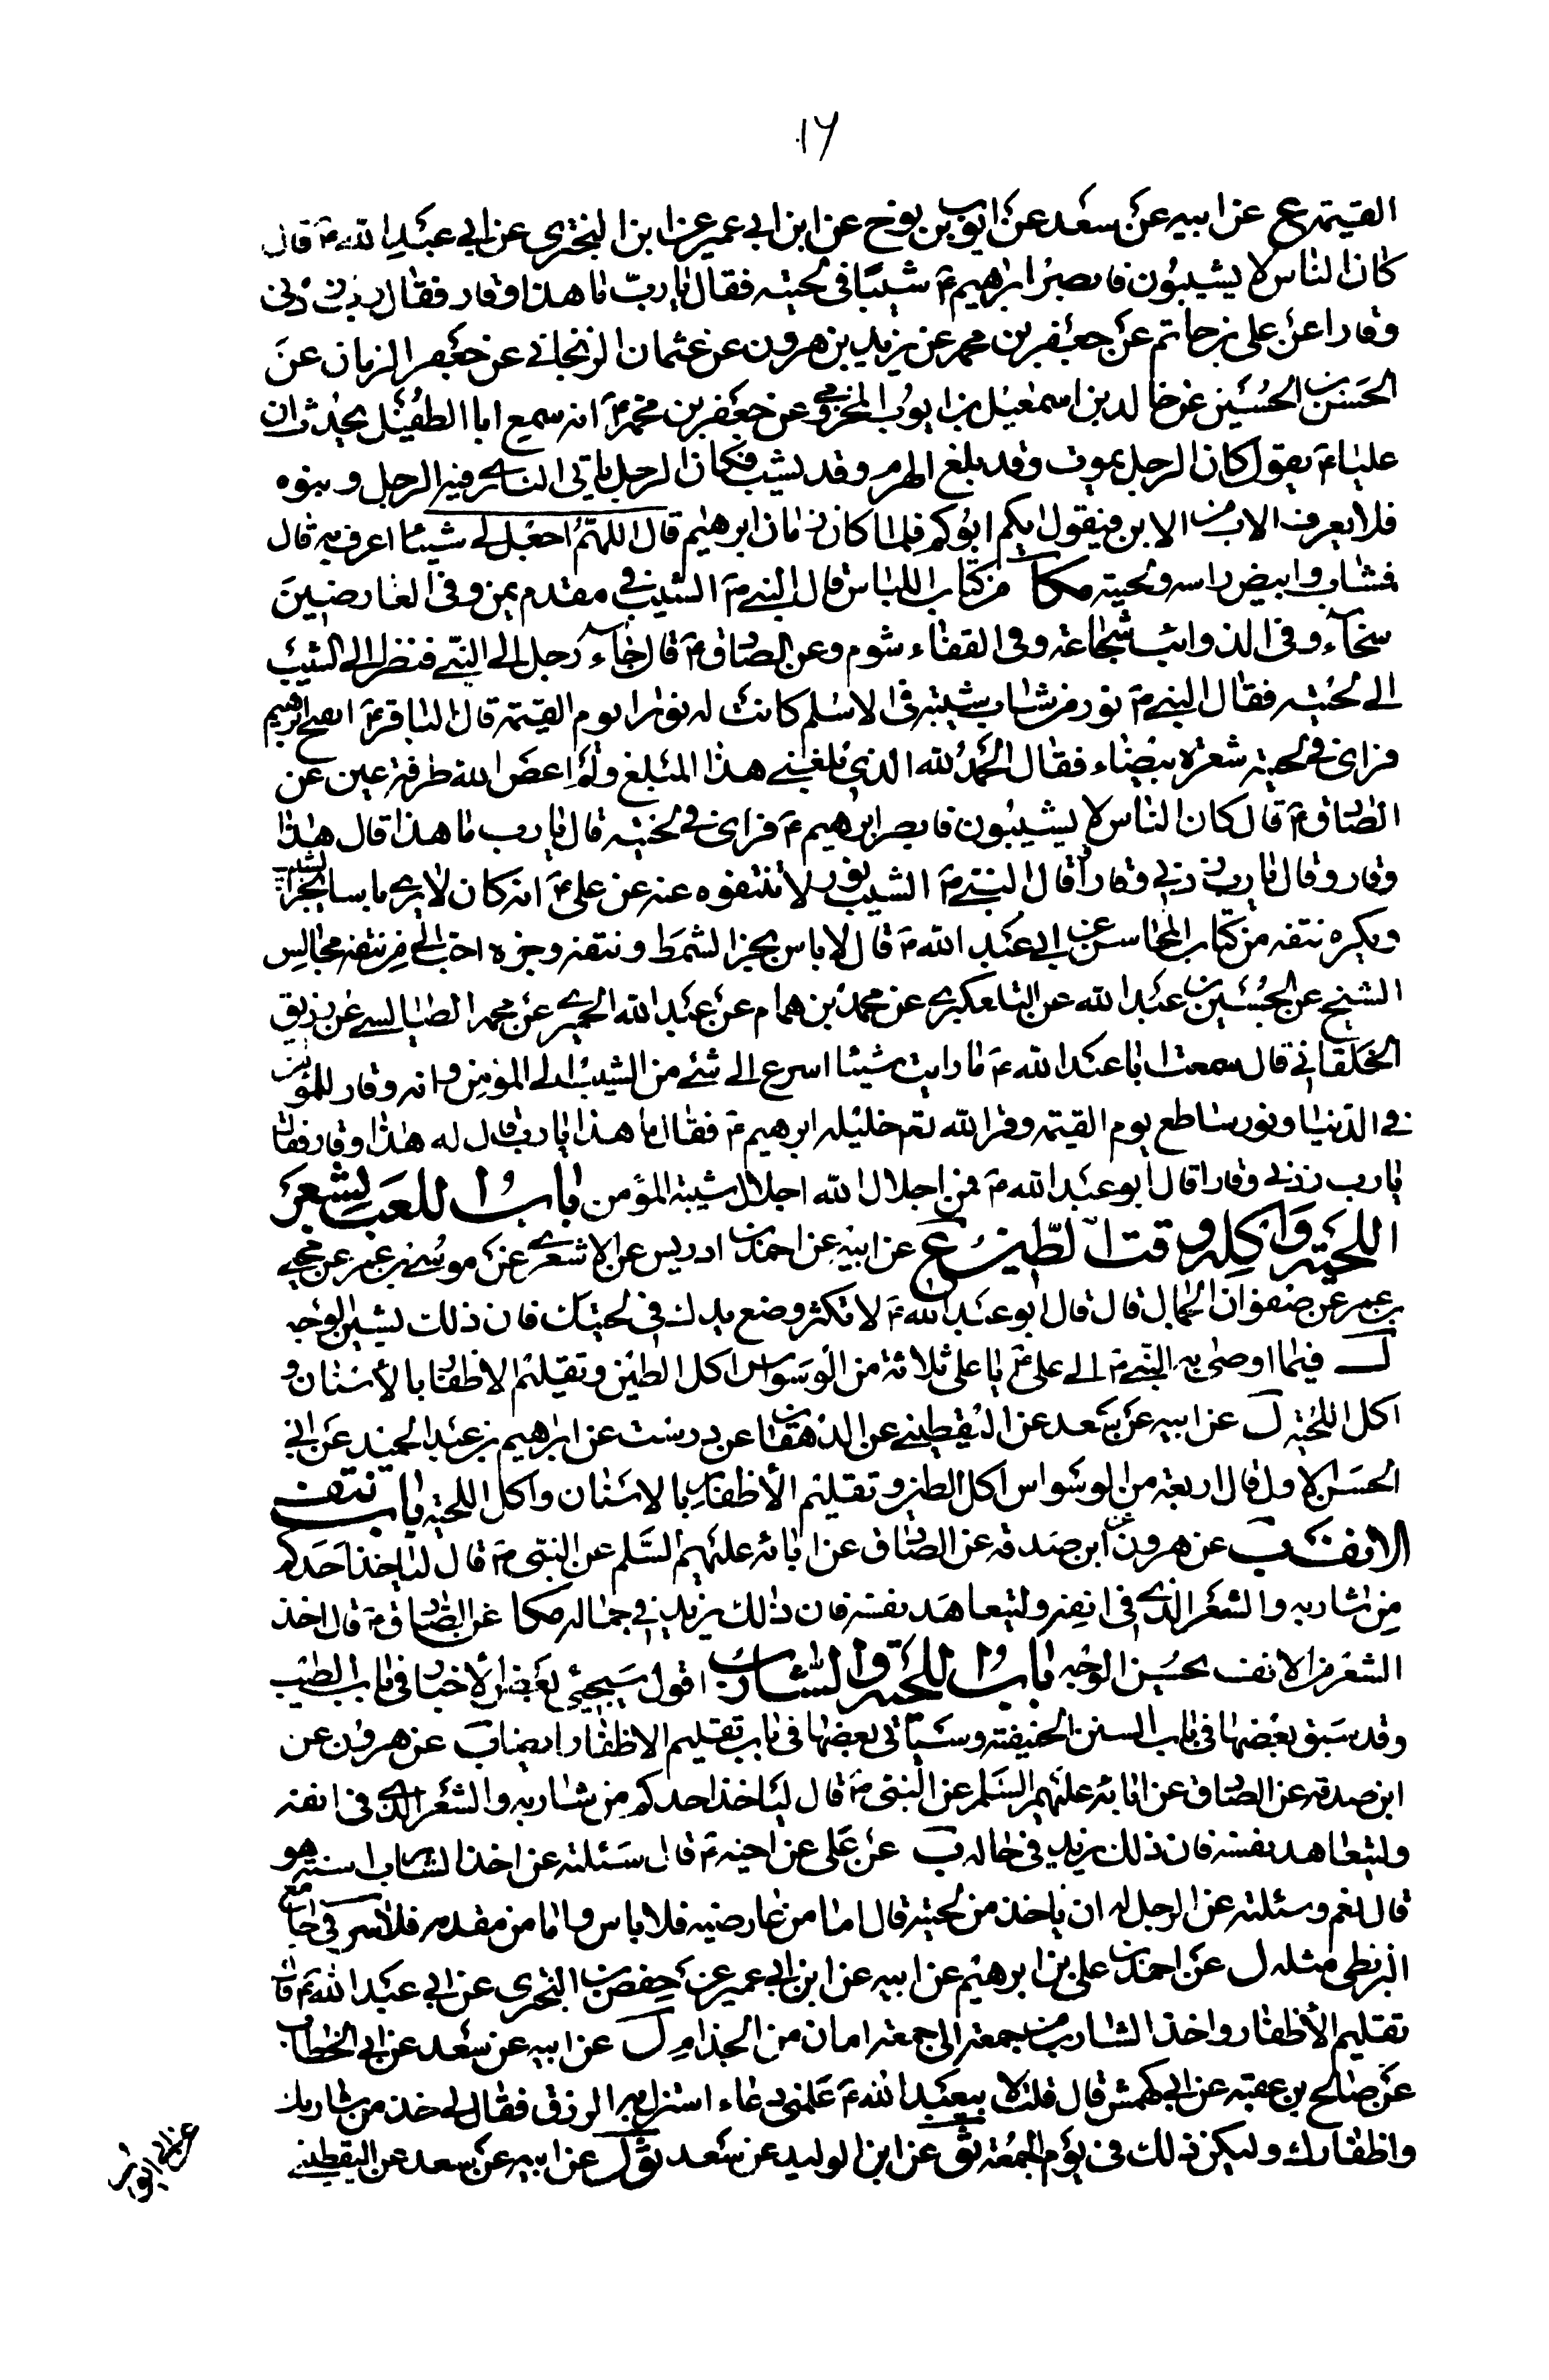 ١٦
القيمة ع عن ابيه عن سعد عن ايوب بن نوح عن ابن ابي عمير عن ابن البختري عن ابي عبد الله ع قال
كان الناس لا يشيبون فابصر ابرهيم ع شيبا في لحيته فقال يا رب ما هذا وقار فقال رب زدني
وقارا عن علي بن حاتم عن جعفر بن محمد عن يزيد بن هرون عن عثمان الزنجاني عن جعفر الزمان عن
الحسن بن الحسين عن خالد بن اسمعيل بن ايوب المخزومي عن جعفر بن محمد ع انه سمع ابا الطفيل يحدث ان
عليا ع يقول كان الرجل يموت وقد بلغ الهرم وقد يشيب فكان الرجل ياتي النادي فيه الرجل وبنوه
فلا يعرف الاب من الابن فيقول ايكم ابوكم فلما كان زمان ابرهيم قال اللهم اجعل لي شيبا اعرف به قال
فشاب وابيض راسه ولحيته مكا من كتاب اللباس قال النبي ص الشيب في مقدم يمن وفي العارضين
سخاء وفي الذوائب شجاعة وفي القفاء شوم وعن الصادق ع قال جاء رجل الى النبي فنظر الى الشيب
الى لحيته فقال النبي ص نور من شاب شيبة في الاسلم كانت له نورا يوم القيمة قال الباقر ع اصبح ابرهيم
فراى في لحيته شعرة بيضاء فقال الحمد لله الذي بلغني هذا المبلغ ولم اعص الله طرفة عين عن
الصادق ع قال كان الناس لا يشيبون فابصر ابرهيم ع فراى في لحيته قال يا رب ما هذا قال هذا
وقار وقال يا رب زدني وقارا قال النبي ص الشيب نور لا تنتفوه عنه عن علي ع انه كان لا يرى باسا بجز الشيب
ويكره نتفه من كتاب المحاسن عن ابي عبد الله ع قال لا باس بجز الشمط ونتفه وجزه احب الي من نتفه مجالس
الشيخ عن الحسين بن عبد الله عن التلعكبري عن محمد بن همام عن عبد الله الحميري عن محمد الطيالسي عن رزيق
الخلقاني قال سمعت ابا عبد الله ع ما رايت شيئا اسرع الى شئ من الشيب الى المؤمن وانه وقار للمؤمن
في الدنيا ونور ساطع يوم القيمة وقر الله تع خليله ابرهيم ع فقال ما هذا يا رب قال له هذا وقار فقال
يا رب زدني وقارا قال ابو عبد الله ع فمن اجلال الله اجلال شيبة المؤمن باب اللعب بشعر
اللحية واكله وفت الطين ع عن ابيه عن احمد بن ادريس عن الاشعري عن موسى بن عمر عن يحيى
بن عمر عن صفوان الجمال قال قال ابو عبد الله ع لا تكثر وضع يدك في لحيتك فان ذلك يشين الوجه
ل فيما اوصى به النبي ص الى علي ع يا علي ثلاثة من الوسواس اكل الطين وتقليم الاظفار بالاسنان و
اكل اللحية ل عن ابيه عن سعد عن اليقطيني عن الدهقان عن درست عن ابرهيم بن عبد الحميد عن ابي
الحسن الاول قال اربعة من الوسواس اكل الطين وتقليم الأظفار بالاسنان واكل اللحية باب نتف
الانف ب عن هرون عن ابن صدقة عن الصادق عن ابائه عليهم السلم عن النبي ص قال لياخذ احدكم
من شاربه والشعر الذي في انفه وليتعاهد نفسه فان ذلك يزيد في جماله مكا عن الصادق ع قال اخذ
الشعر من الانف يحسن الوجه باب اللحية والشارب اقول سيجئ بعض الأخبار في باب الطيب
وقد سبق بعضها في باب السنن الحنيفية وسياتي بعضها في باب تقليم الاظفار ايضا ب عن هرون عن
ابن صدقة عن الصادق عن ابائه عليهم السلم عن النبي ص قال لياخذ احدكم من شاربه والشعر الذي في انفه
وليتعاهد نفسه فان ذلك يزيد في جماله ب عن علي عن اخيه ع قال سئلته عن اخذ الشارب اسنة هو
قال نعم وسئلته عن الرجل له ان ياخذ من لحيته قال اما من عارضيه فلا باس واما من مقدمه فلا سر في جامع
البزنطي مثله ل عن احمد بن علي بن ابرهيم عن ابيه عن ابن ابي عمير عن حفص بن البختري عن ابي عبد الله ع قال
تقليم الأظفار واخذ الشارب من جمعة الى جمعة امان من الجذام ل عن ابيه عن سعد عن ابن ابي الخطاب
عن صالح بن عقبة عن ابي كهمش قال قلت لابيعبد الله ع علمني دعاء استنزل به الرزق فقال لي خذ من شاربك
واظفارك وليكن ذلك في يوم الجمعة ثو عن ابن الوليد عن سعد ثو ل عن ابيه عن سعد عن اليقطيني
عن ابي ايوب